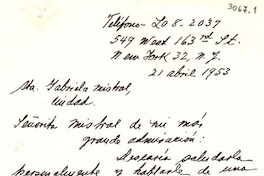 3067.1
Teléfono- LO 8-2037
549 West 163rd St.
New York 32, N.Y.
21 abril 1953
Sta. Gabriela Mistral,
Ciudad.
Señorita Mistral de mi más
grande admiración:
Desearía saludarla
personalmente y hablarle de una